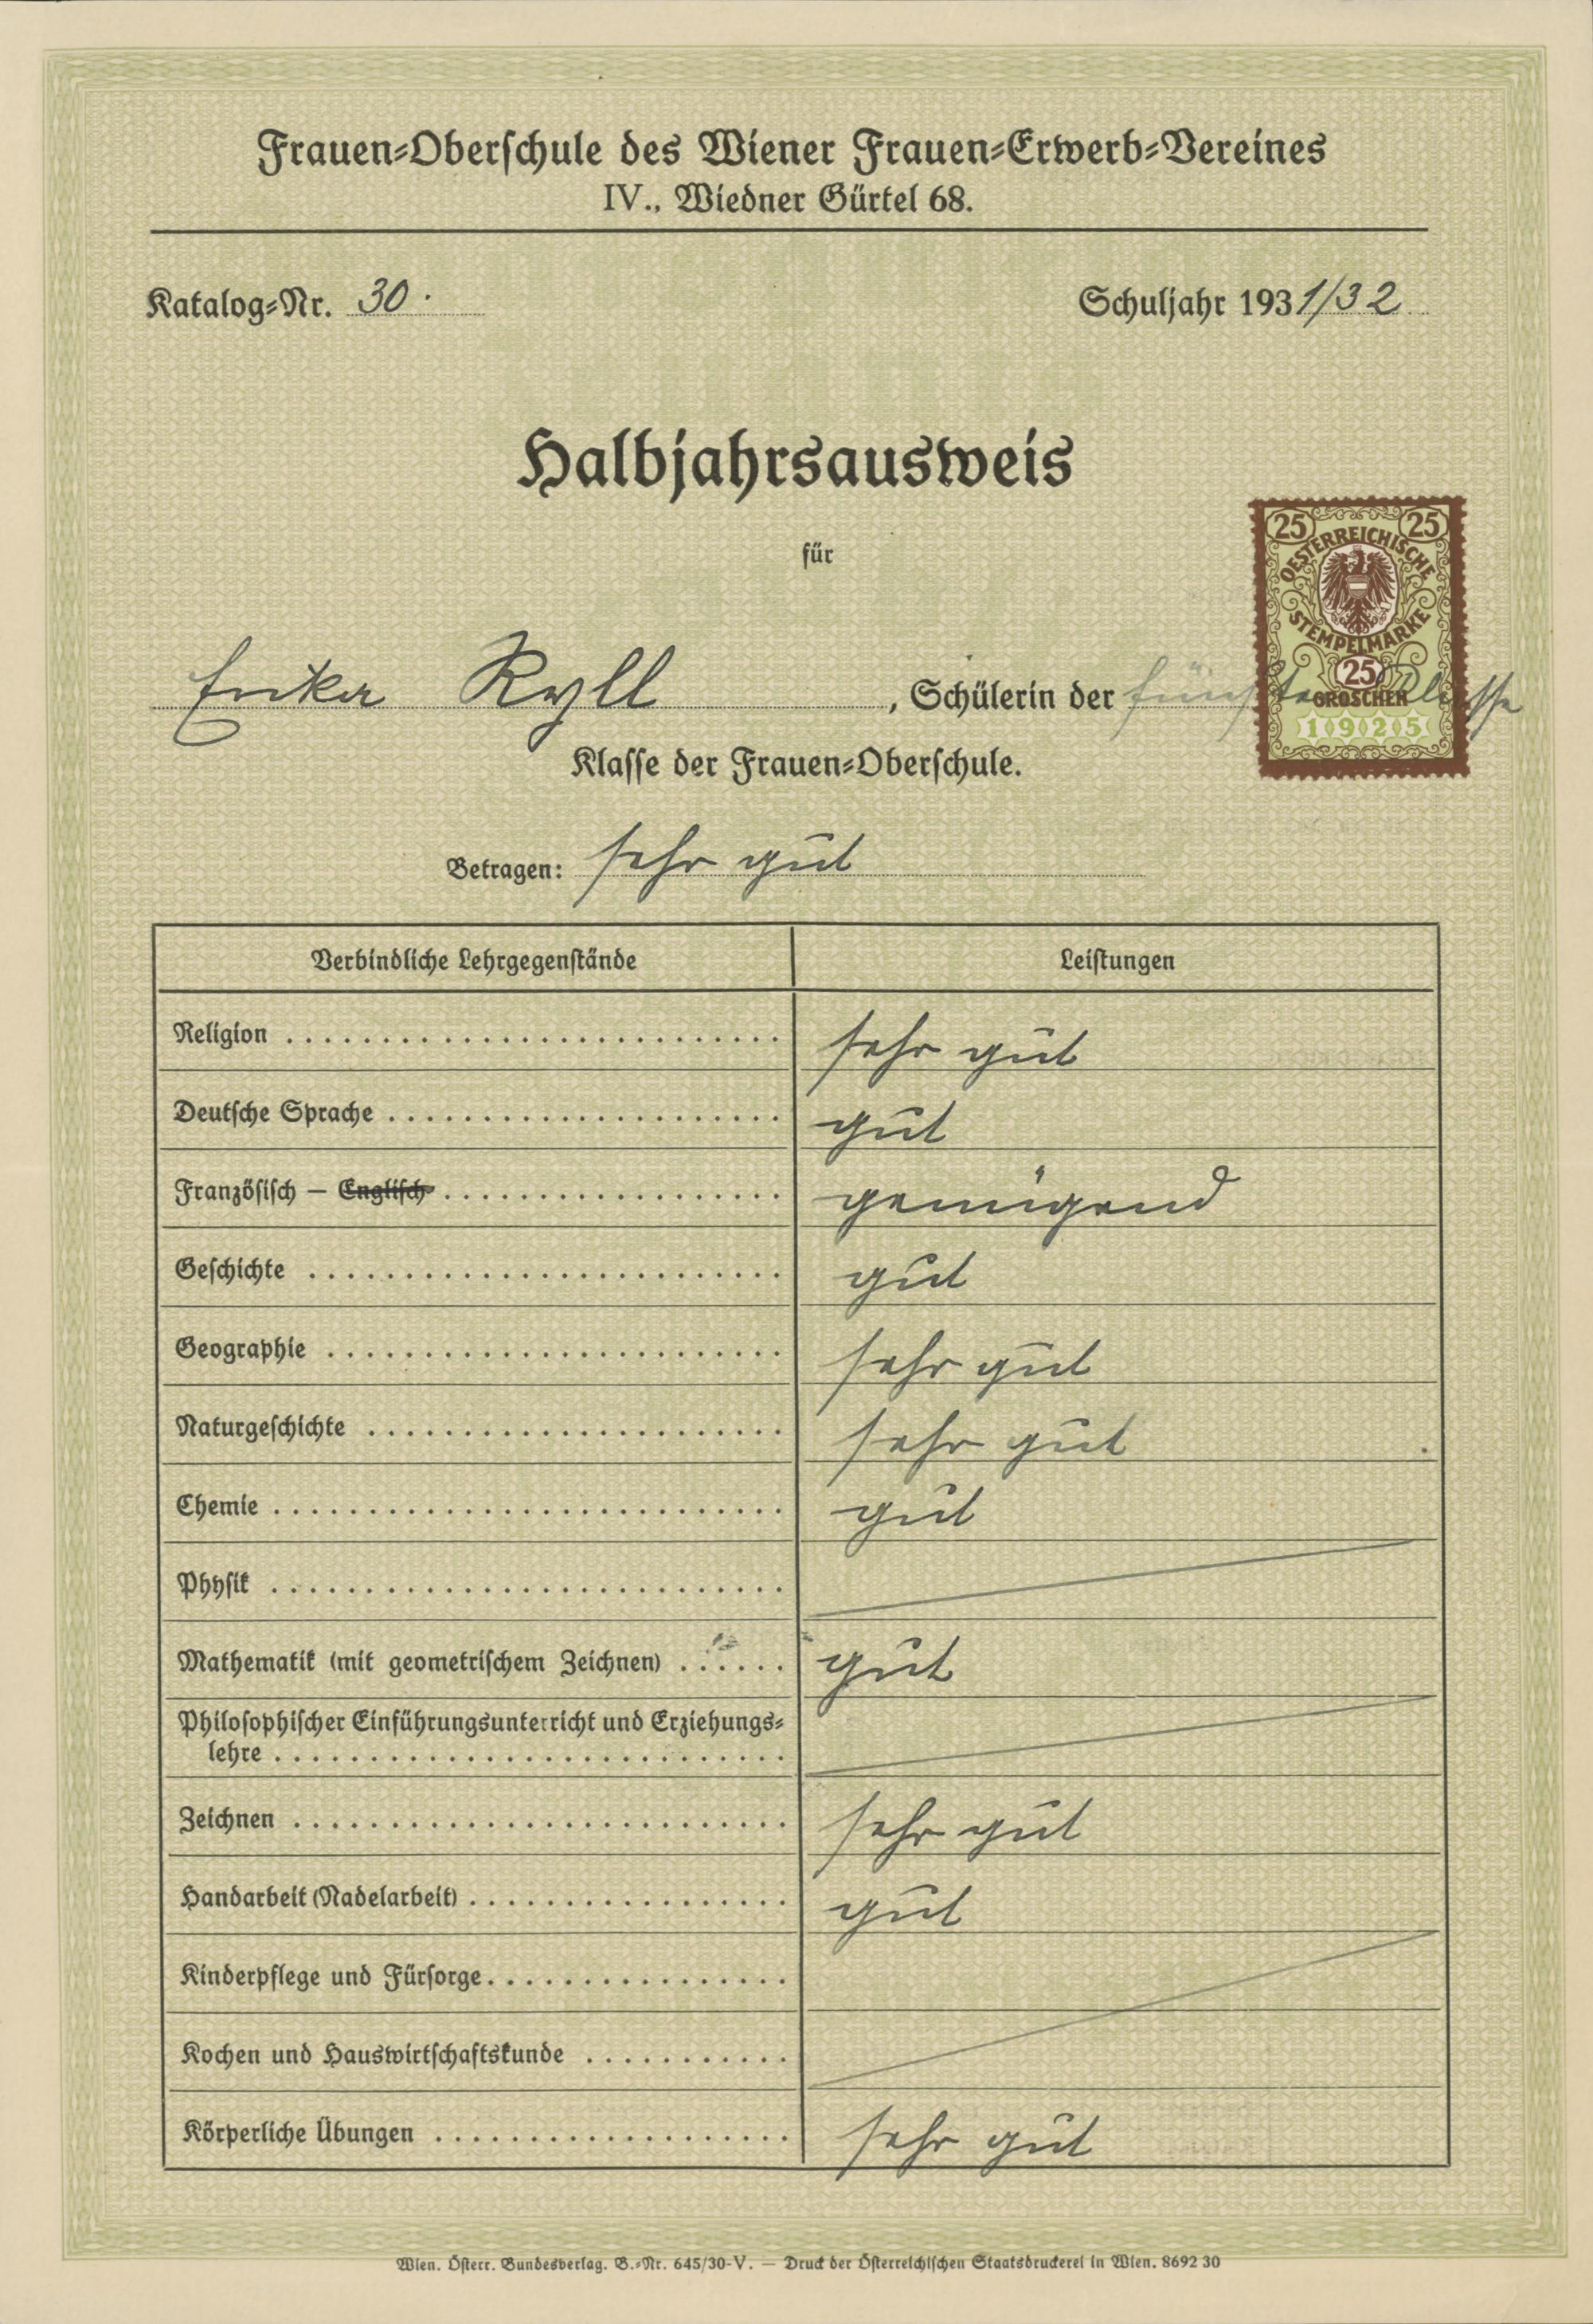 Frauen-Oberschule des Wiener Frauen-Erwerb-Vereines
IV., Wiedner Gürtel 68.
Katalog-Nr. 30.
Schuljahr 1931/32
Halbjahrsausweis
für
25 25
OESTERREICHISCHE
STEMPELMARKE
25
GROSCHEN
1925
Erika Ryll, Schülerin der fünften Klasse
Klasse der Frauen-Oberschule.
Betragen: sehr gut
Verbindliche Lehrgegenstände Leistungen
Religion sehr gut
Deutsche Sprache gut
Französisch – Englisch genügend
Geschichte gut
Geographie sehr gut
Naturgeschichte sehr gut
Chemie gut
Physik
Mathematik (mit geometrischem Zeichnen) gut
Philosophischer Einführungsunterricht und Erziehungs-
lehre
Zeichnen sehr gut
Handarbeit (Nadelarbeit) gut
Kinderpflege und Fürsorge
Kochen und Hauswirtschaftskunde
Körperliche Übungen sehr gut
Wien. Österr. Bundesverlag. B.-Nr. 645/30-V. — Druck der Österreichischen Staatsdruckerei in Wien. 8692 30